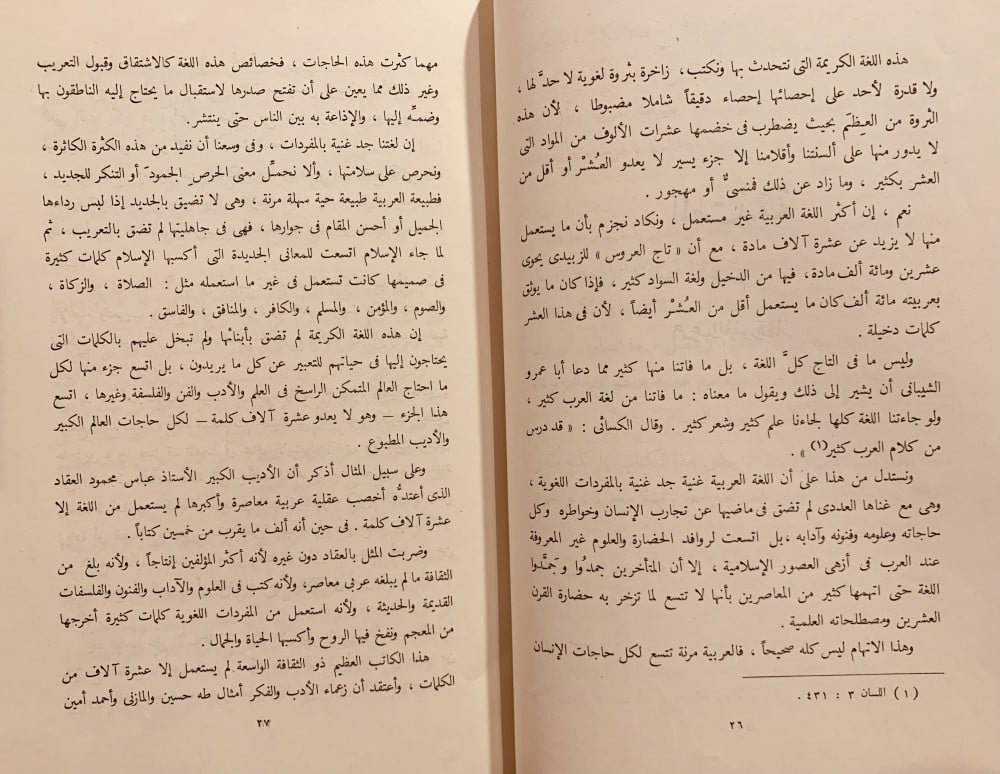 هذه اللغة الكريمة التى نتحدث بها ونكتب، زاخرة بثروة لغوية لا حدَّ لها ،
ولا قدرة لأحد على إحصائها إحصاء دقيقاً شاملا مضبوطا ، لأن هذه
الثروة من العِظَم بحيث يضطرب فى خضمها عشرات الألوف من المواد التى
لا يدور منها على ألسنتنا وأقلامنا إلا جزء يسير لا يعدو العُشْر أو أقل من
العشر بكثير ، وما زاد عن ذلك فمنسىٌّ أو مهجور .
نعم ، إن أكثر اللغة العربية غير مستعمل ، ونكاد نجزم بأن ما يستعمل
منها لا يزيد عن عشرة آلاف مادة ، مع أن « تاج العروس » للزبيدى يحوى
عشرين ومائة ألف مادة، فيها من الدخيل ولغة السواد كثير ، فإذا كان ما يوثق
بعربيته مائة ألف كان ما يستعمل أقل من العُشْر أيضاً ، لأن فى هذا العشر
كلمات دخيلة .
وليس ما فى التاج كلَّ اللغة ، بل ما فاتنا منها كثير مما دعا أبا عمرو
الشيبانى أن يشير إلى ذلك ويقول ما معناه : ما فاتنا من لغة العرب كثير ،
ولو جاءتنا اللغة كلها لجاءنا علم كثير وشعر كثير . وقال الكسائى : « قد درس
من كلام العرب كثير(١) » .
ونستدل من هذا على أن اللغة العربية غنية جد غنية بالمفردات اللغوية ،
وهى مع غناها العددى لم تضق فى ماضيها عن تجارب الإنسان وخواطره وكل
حاجاته وعلومه وفنونه وآدابه ، بل اتسعت لروافد الحضارة والعلوم غير المعروفة
عند العرب فى أزهى العصور الإسلامية ، إلا أن المتأخرين جمدُوا وجَمَّدوا
اللغة حتى اتهمها كثير من المعاصرين بأنها لا تتسع لما تزخر به حضارة القرن
العشرين ومصطلحاته العلمية .
وهذا الاتهام ليس كله صحيحاً ، فالعربية مرنة تتسع لكل حاجات الإنسان
(١) اللسان ٣ : ٤٣١ .
٢٦
مهما كثرت هذه الحاجات ، فخصائص هذه اللغة كالاشتقاق وقبول التعريب
وغير ذلك مما يعين على أن تفتح صدرها لاستقبال ما يحتاج إليه الناطقون بها
وضمِّه إليها ، والإذاعة به بين الناس حتى ينتشر.
إن لغتنا جد غنية بالمفردات ، وفى وسعنا أن نفيد من هذه الكثرة الكاثرة ،
ونحرص على سلامتها ، وألا نحمِّل معنى الحرصِ الجمودَ أو التنكر للجديد ،
فطبيعة العربية طبيعة حية سهلة مرنة ، وهى لا تضيق بالجديد إذا لبس رداءها
الجميل أو أحسن المقام فى جوارها ، فهى فى جاهليتها لم تضق بالتعريب ، ثم
لما جاء الإسلام اتسعت للمعانى الجديدة التى أكسبها الإسلام كلمات كثيرة
فى صميمها كانت تستعمل فى غير ما استعمله مثل : الصلاة ، والزكاة ،
والصوم ، والمؤمن ، والمسلم ، والكافر ، والمنافق ، والفاسق .
إن هذه اللغة الكريمة لم تضق بأبنائها ولم تبخل عليهم بالكلمات التى
يحتاجون إليها فى حياتهم للتعبير عن كل ما يريدون ، بل اتسع جزء منها لكل
ما احتاج العالم المتمكن الراسخ فى العلم والأدب والفن والفلسفة وغيرها ، اتسع
هذا الجزء – وهو لا يعدو عشرة آلاف كلمة – لكل حاجات العالم الكبير
والأديب المطبوع .
وعلى سبيل المثال أذكر أن الأديب الكبير الأستاذ عباس محمود العقاد
الذى أعتدُّه أخصب عقلية عربية معاصرة وأكبرها لم يستعمل من اللغة إلا
عشرة آلاف كلمة . فى حين أنه ألف ما يقرب من خمسين كتاباً .
وضربت المثل بالعقاد دون غيره لأنه أكثر المؤلفين إنتاجاً ، ولأنه بلغ من
الثقافة ما لم يبلغه عربى معاصر، ولأنه كتب فى العلوم والآداب والفنون والفلسفات
القديمة والحديثة ، ولأنه استعمل من المفردات اللغوية كلمات كثيرة أخرجها
من المعجم ونفخ فيها الروح وأكسبها الحياة والجمال .
هذا الكاتب العظيم ذو الثقافة الواسعة لم يستعمل إلا عشرة آلاف من
الكلمات ، وأعتقد أن زعماء الأدب والفكر أمثال طه حسين والمازنى وأحمد أمين
٢٧